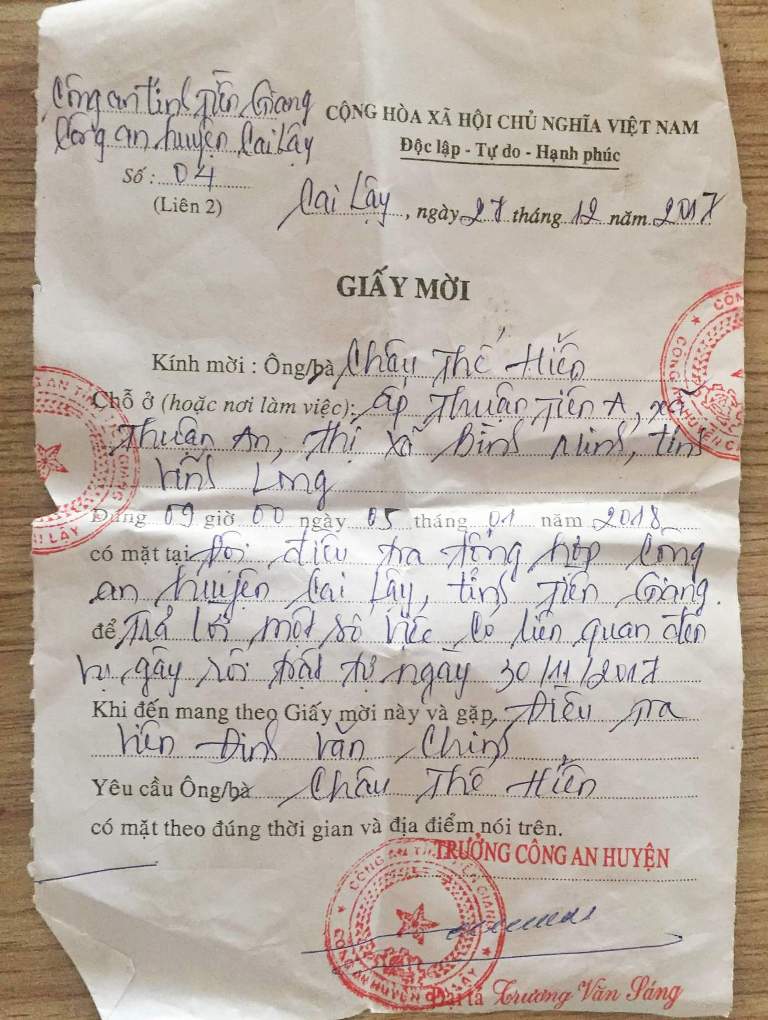 Công an tỉnh Tiền Giang
Công an huyện Cai Lậy
Số : 04
(Liên 2)
CỘNG HÒA XÃ HỘI CHỦ NGHĨA VIỆT NAM
Độc lập - Tự do - Hạnh phúc
Cai Lậy, ngày 27 tháng 12 năm 2017
GIẤY MỜI
Kính mời : Ông/bà Châu Thế Hiển
Chỗ ở (hoặc nơi làm việc): ấp Thuận Tiến A, xã
Thuận An, thị xã Bình Minh, tỉnh
Vĩnh Long
Đúng 09 giờ 00 ngày 05 tháng 01 năm 2018
có mặt tại Đội điều tra tổng hợp Công
an huyện Cai Lậy, tỉnh Tiền Giang.
để Trả lời một số việc có liên quan đến
vụ gây rối trật tự ngày 30/11/2017
Khi đến mang theo Giấy mời này và gặp Điều tra
viên Đinh Văn Chính
Yêu cầu Ông/bà Châu Thế Hiển
có mặt theo đúng thời gian và địa điểm nói trên.
TRƯỞNG CÔNG AN HUYỆN
Đại tá Trương Văn Sáng